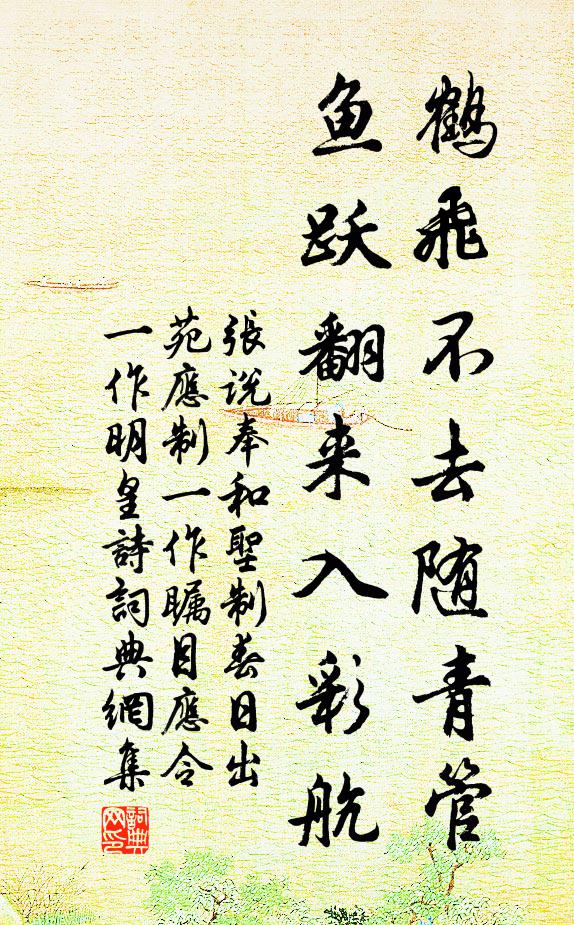 鹤飛不去随青管
鱼跃翻来入彩航
張说奉和聖制春日出
苑應制一作瞩目應令
一作明皇詩詞典網集
詞典
网印